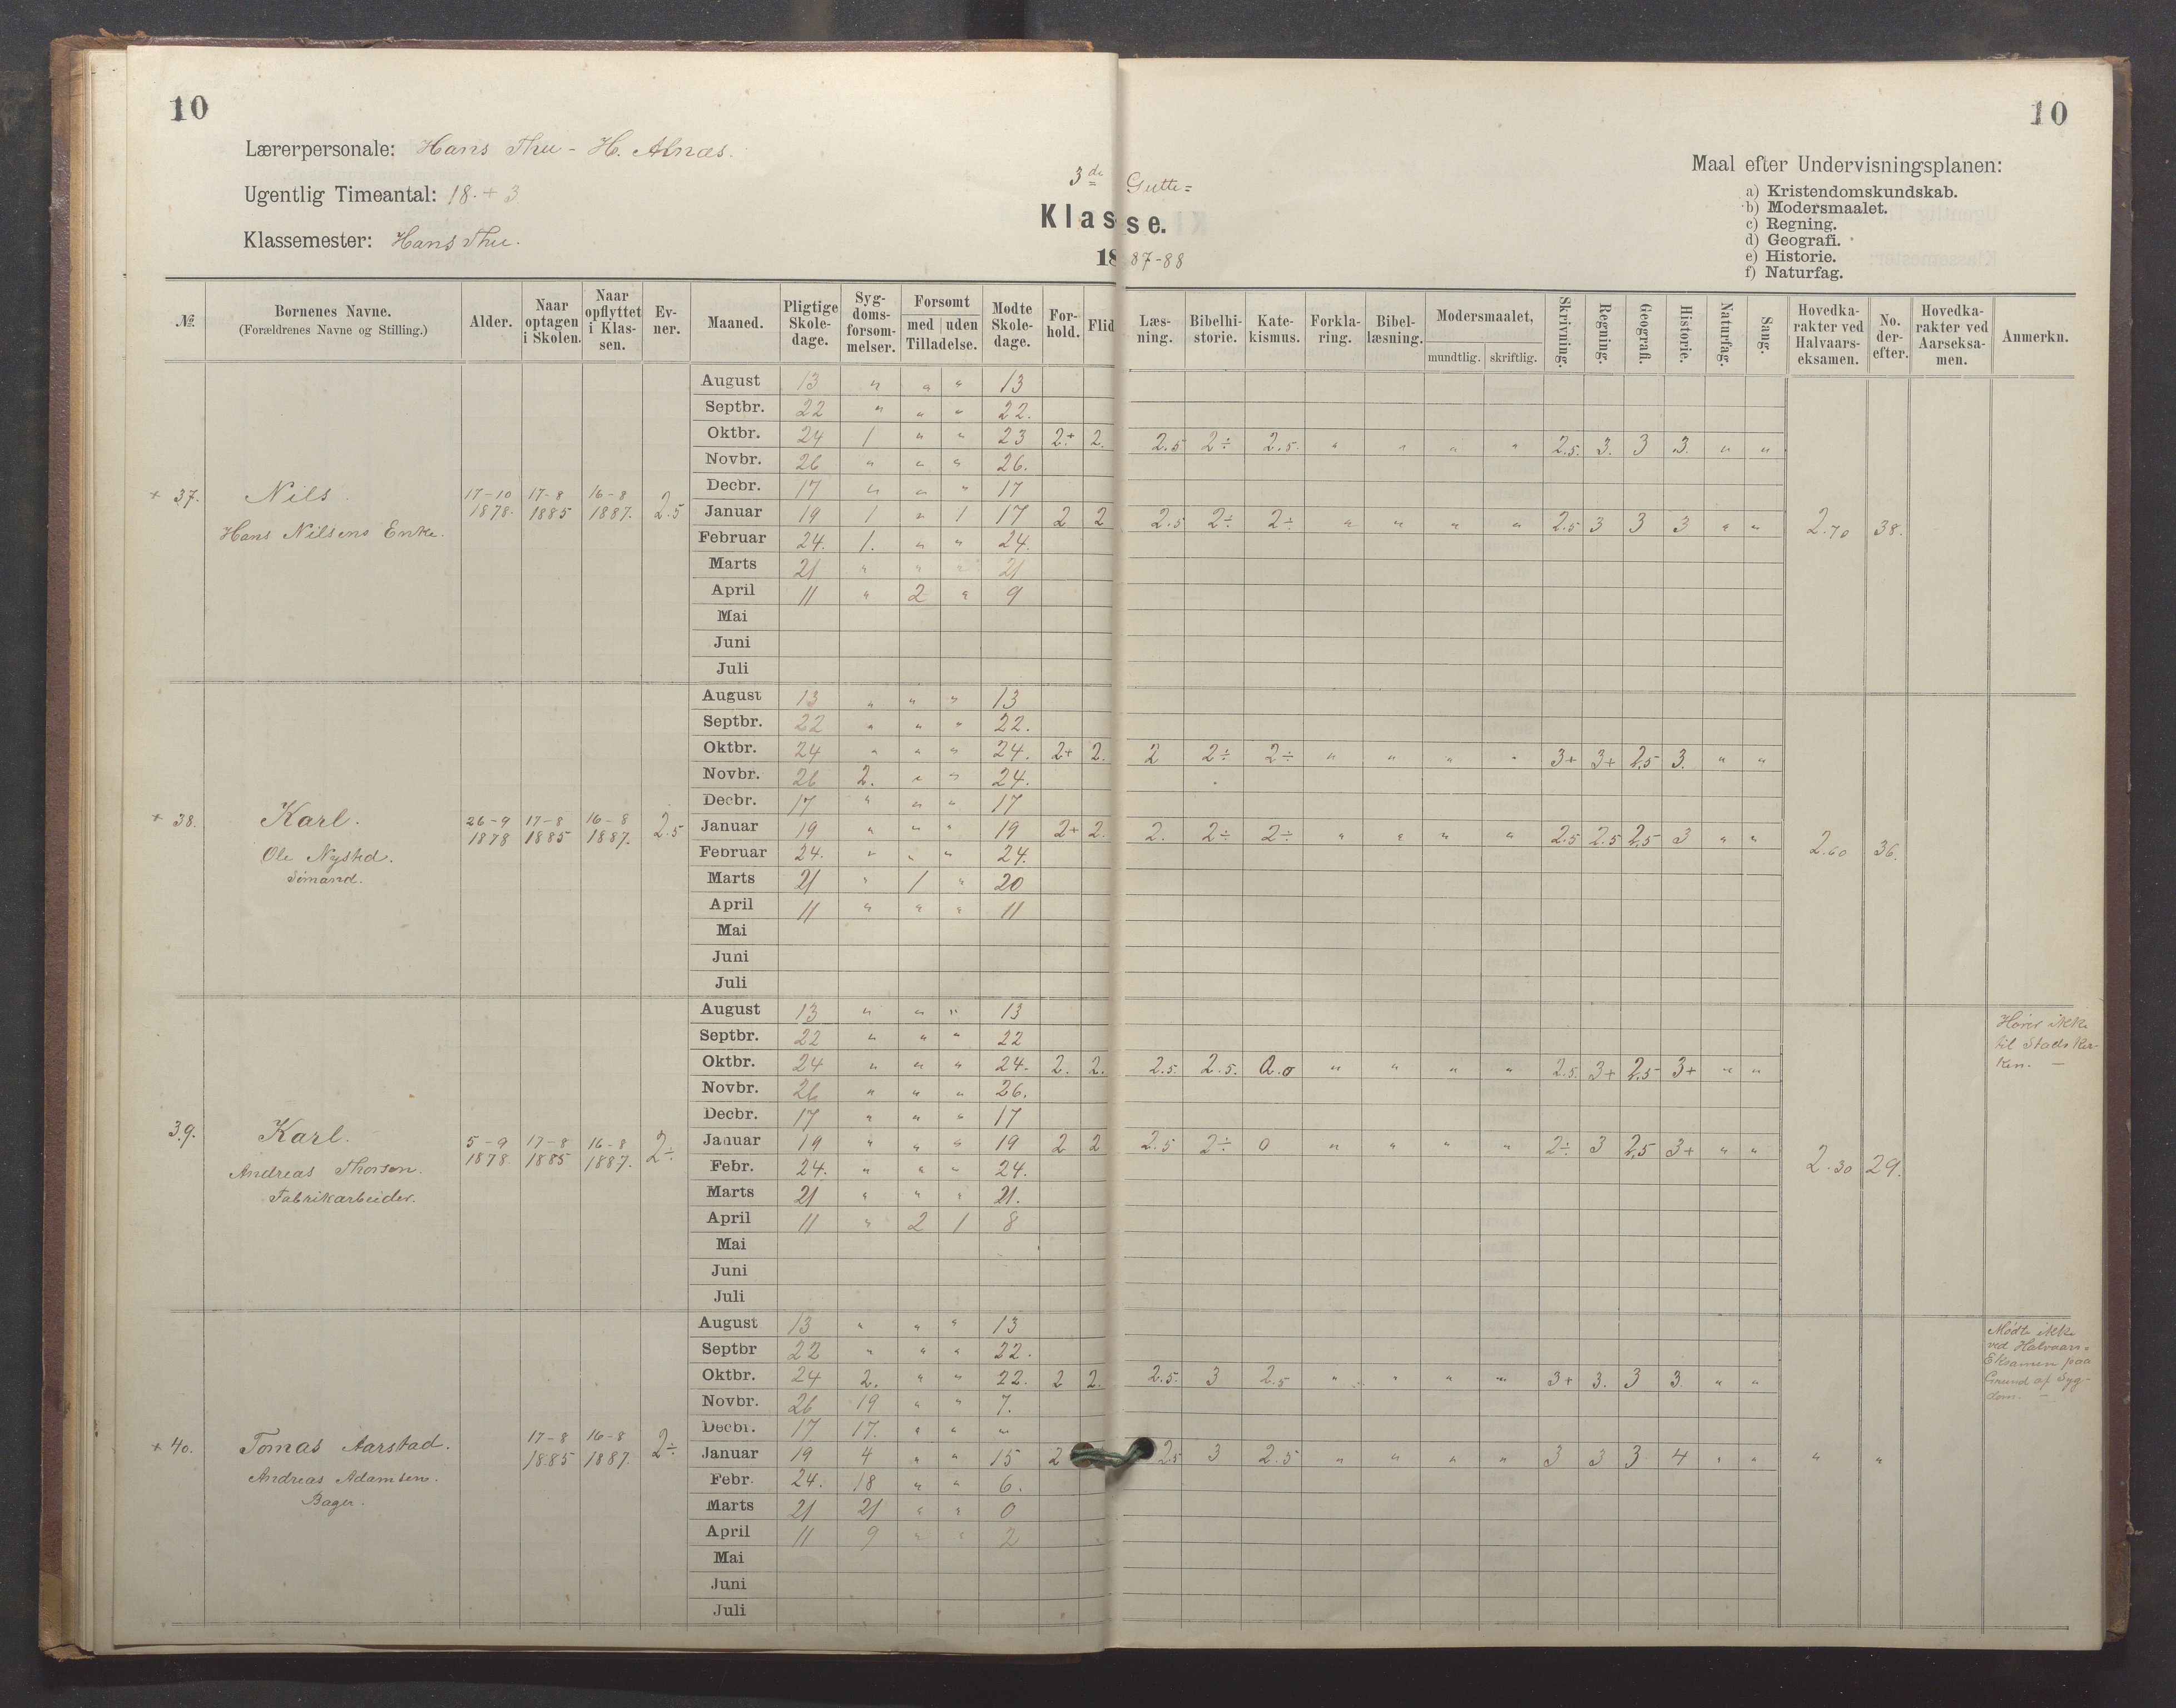 10
10
Lærerpersonale: Hans Thu - H. Alnæs.
Ugentlig Timeantal: 18. + 3
Klassemester: Hans Thu.
3de Gutte=
Klasse.
1887-88
Maal efter Undervisningsplanen:
a) Kristendomskundskab.
b) Modersmaalet.
c) Regning.
d) Geografi.
e) Historie.
f) Naturfag.
№ Børnenes Navne. (Forældrenes Navne og Stilling.) Alder. Naar optagen i Skolen. Naar opflyttet i Klassen. Evner. Maaned. Pligtige Skoledage. Sygdomsforsømmelser. Forsømt med uden Tilladelse. Mødte Skoledage. Forhold. Flid Læsning. Bibelhistorie. Katekismus. Forklaring. Bibellæsning. Modersmaalet, mundtlig. skriftlig. Skrivning. Regning. Geografi. Historie. Naturfag. Sang. Hovedkarakter ved Halvaarseksamen. No. derefter. Hovedkarakter ved Aarseksamen. Anmerkn.
+ 37. Nils.
Hans Nilsens Enke.
17-10 1878. 17-8 1885 16-8 1887. 2.5
August 13 " " " 13
Septbr. 22 " " " 22.
Oktbr. 24 1 " " 23 2.+ 2. 2.5 2÷ 2.5. " " " " 2.5. 3. 3 3. " "
Novbr. 26 " " " 26.
Decbr. 17 " " " 17
Januar 19 1 " 1 17 2 2 2.5 2÷ 2÷ " " " " 2.5 3 3 3 " " 2.70 38.
Februar 24. 1. " " 24.
Marts 21 " " " 21
April 11 " 2 " 9
Mai
Juni
Juli
+ 38. Karl.
Ole Nysted.
Sømand.
26-9 1878 17-8 1885 16-8 1887. 2.5
August 13 " " " 13
Septbr. 22 " " " 22.
Oktbr. 24 " " " 24. 2+ 2. 2 2÷ 2÷ " " " " 3+ 3+ 2.5 3. " "
Novbr. 26 2. " " 24.
Decbr. 17 " " " 17
Januar 19 " " " 19 2+ 2. 2. 2÷ 2÷ " " " " 2.5 2.5 2.5 3 " " 2.60 36.
Februar 24. " " " 24.
Marts 21 " 1 " 20
April 11 " " " 11
Mai
Juni
Juli
39. Karl.
Andreas Thorsen.
Fabrikarbeider.
5-9 1878. 17-8 1885 16-8 1887. 2÷
August 13 " " " 13
Septbr. 22 " " " 22
Oktbr. 24 " " " 24. 2. 2. 2.5. 2.5. a.o " " " " 2.5. 3+ 2.5 3+ " "
Novbr. 26 " " " 26.
Decbr. 17 " " " 17
Januar 19 " " " 19 2 2 2.5 2÷ 0 " " " " 2÷ 3 2.5 3+ " " 2.30 29.
Febr. 24. " " " 24.
Marts 21 " " " 21.
April 11 " 2 1 8
Mai
Juni
Juli
Hører ikke
til Stadskir-
ken. —
+ 40. Tomas Aarstad.
Andreas Adamsen.
Bager.
17-8 1885 16-8 1887. 2÷
August 13 " " " 13
Septbr 22 " " " 22.
Oktbr. 24 2. " " 22. 2 2. 2.5. 3 2.5 " " " " 3+ 3. 3 3. " "
Novbr. 26 19 " " 7.
Decbr. 17 17. " " "
Januar 19 4 " " 15 2 2.5 3 2.5 " " " " 3 3 3 4 " " " "
Febr. 24. 18 " " 6.
Marts 21 21 " " 0
April 11 9 " " 2
Mai
Juni
Juli
Mødte ikke
ved Halvaars=
Eksamen paa
Grund af Syg-
dom. —